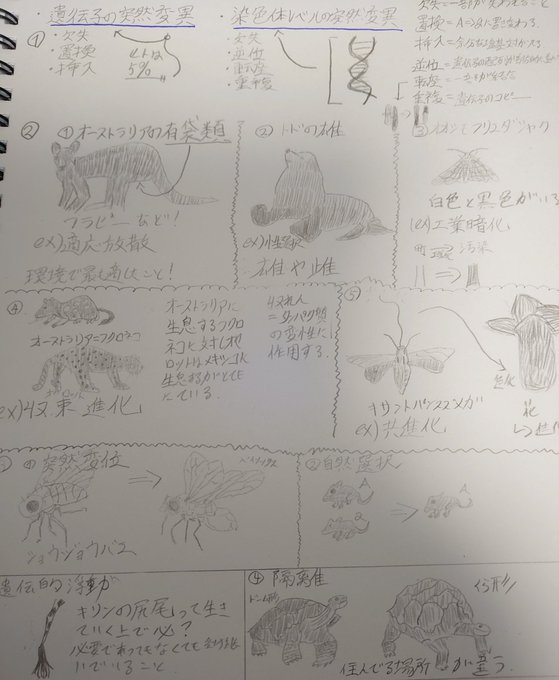 遺伝子の突然変異
・染色体レベルの突然変異
①
・欠失
・置換
・挿入
ヒトは
5%
・欠失
・逆位
・転座
・重複
欠失＝一部が失われること
置換＝A→タに変わる
逆位＝
転座＝
重複＝遺伝子のコピー
②
①オーストラリアの有袋類
ワラビーなど!
ex)適応放散
環境で最も適したこと!
②トドの雄
ex)性選択
雄や雌
③イオシモフリエダシャク
白色と黒色がいる
(ex)工業暗化
汚染
④
オーストラリアニフクロネコ
オセロット
ex)収束進化
オーストラリアに
生息するフクロ
ネコに対しオセ
ロットはメキシコに
生息するがとても
にている。
収れん
＝タンパク質
の変性に
作用する。
⑤
キサントパンスズメガ
ex)共進化
花
突然変位
ショウジョウバエ
②自然選択
A
a
A
遺伝的浮動
キリンの尻尾って生き
ていく上で必?
必要であってもなくても受け継
いでいること
④隔離
ドーム形
くら形
住んでる場所
が違う